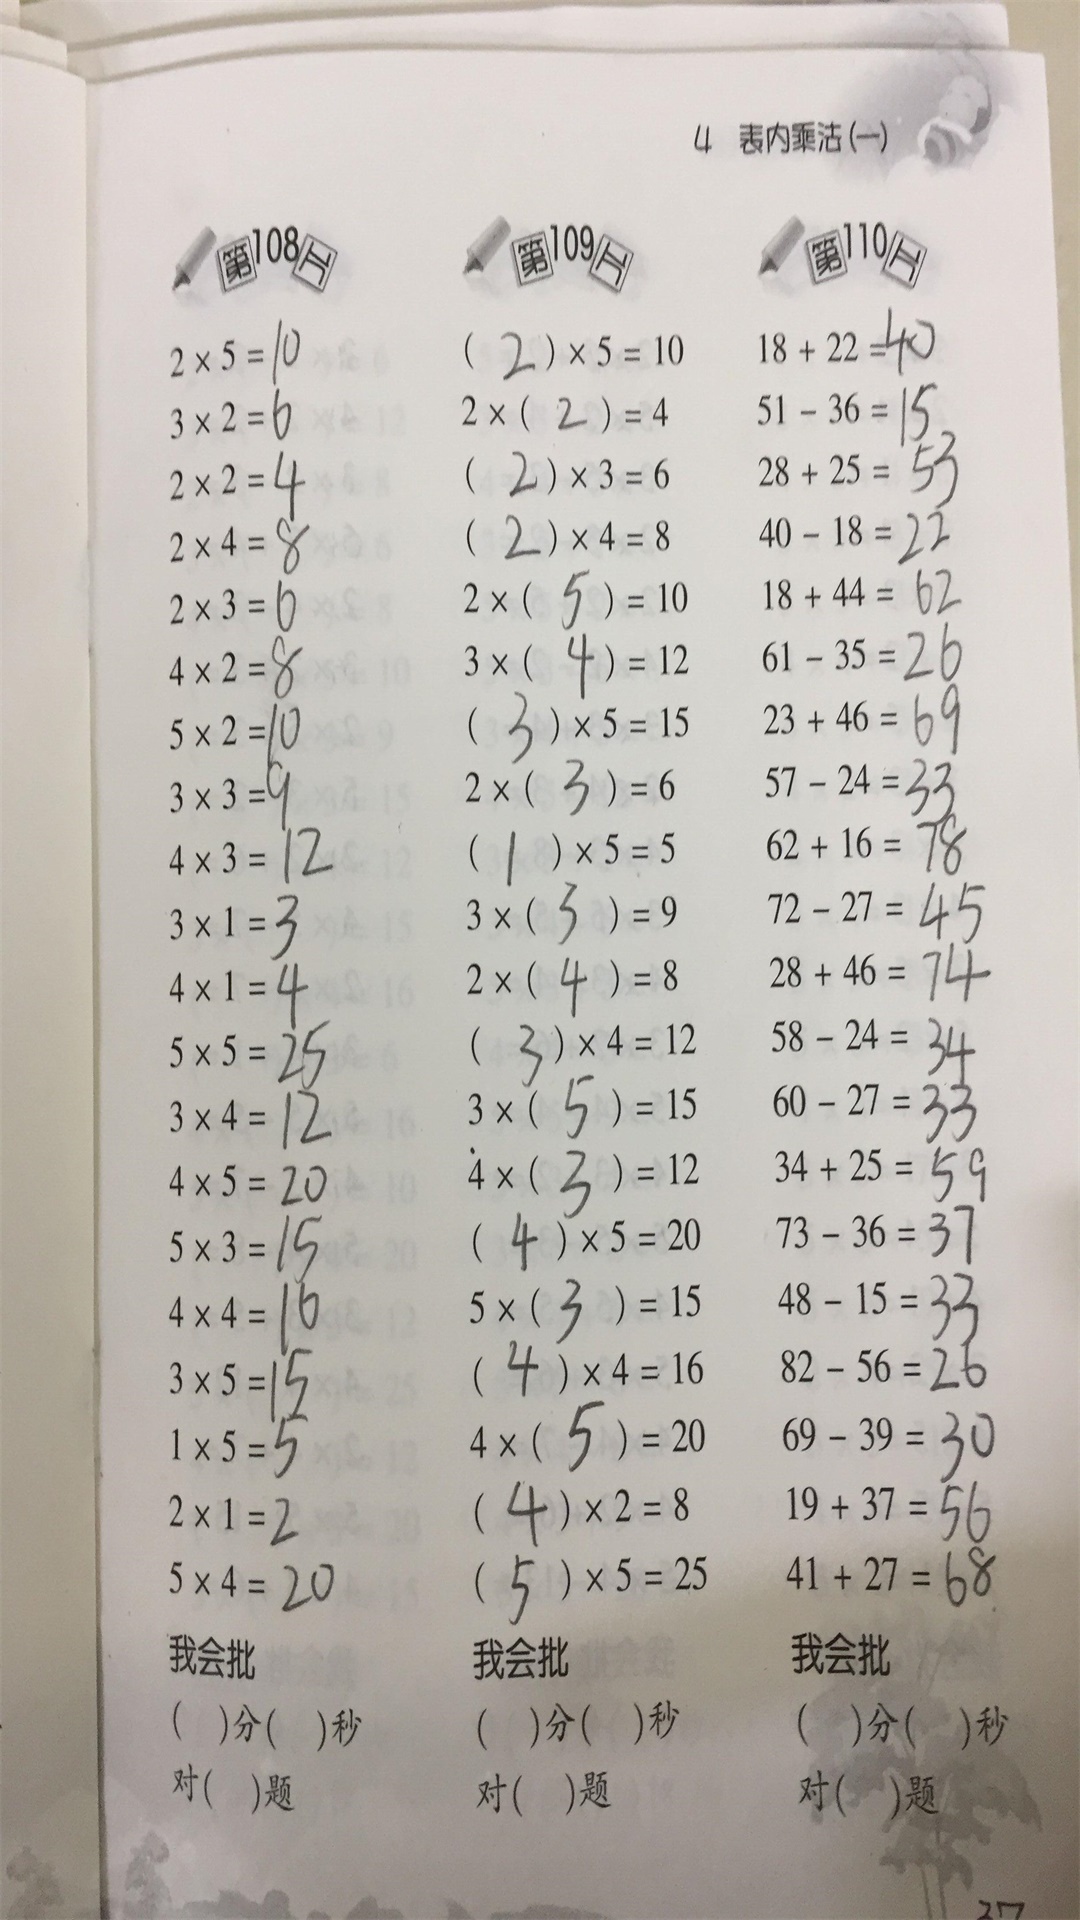 4 表内乘法(一)
第108天
2 × 5 = 10
3 × 2 = 6
2 × 2 = 4
2 × 4 = 8
2 × 3 = 6
4 × 2 = 8
5 × 2 = 10
3 × 3 = 9
4 × 3 = 12
3 × 1 = 3
4 × 1 = 4
5 × 5 = 25
3 × 4 = 12
4 × 5 = 20
5 × 3 = 15
4 × 4 = 16
3 × 5 = 15
1 × 5 = 5
2 × 1 = 2
5 × 4 = 20
我会批
( )分( )秒
对( )题
第109天
( 2 ) × 5 = 10
2 × ( 2 ) = 4
( 2 ) × 3 = 6
( 2 ) × 4 = 8
2 × ( 5 ) = 10
3 × ( 4 ) = 12
( 3 ) × 5 = 15
2 × ( 3 ) = 6
( 1 ) × 5 = 5
3 × ( 3 ) = 9
2 × ( 4 ) = 8
( 3 ) × 4 = 12
3 × ( 5 ) = 15
4 × ( 3 ) = 12
( 4 ) × 5 = 20
5 × ( 3 ) = 15
( 4 ) × 4 = 16
4 × ( 5 ) = 20
( 4 ) × 2 = 8
( 5 ) × 5 = 25
我会批
( )分( )秒
对( )题
第110天
18 + 22 = 40
51 - 36 = 15
28 + 25 = 53
40 - 18 = 22
18 + 44 = 62
61 - 35 = 26
23 + 46 = 69
57 - 24 = 33
62 + 16 = 78
72 - 27 = 45
28 + 46 = 74
58 - 24 = 34
60 - 27 = 33
34 + 25 = 59
73 - 36 = 37
48 - 15 = 33
82 - 56 = 26
69 - 39 = 30
19 + 37 = 56
41 + 27 = 68
我会批
( )分( )秒
对( )题
37